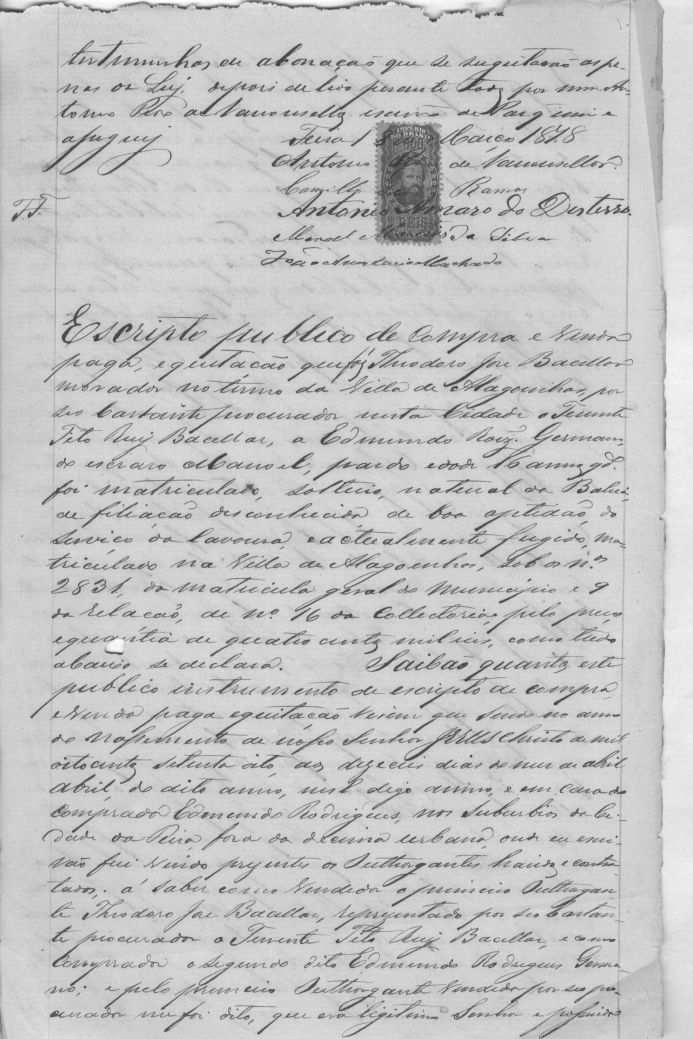 testemunhas de abonação que se seguitarão aspe-
nas da Lej. depois de lido perante todos por mim An-
tonio Pire de Vasconsellos, escrivão de
Feira 1 de Março 1878
IMPERIO DO BRASIL
REIS
Antonio de Vasconsellos.
Camillo Ramos
T.T. Antonio Amaro do Desterro.
Manoel Marcos da Silva
João Anastacio Machado
Escripto publico de Compra e Venda
paga, equitacão que fáz Theodoro Joze Bacellar
morador no têrmo da Villa de Alagoinhas, por
seo bastante procurador nesta Cidade o Tenente
Tito Ruÿ Bacellar, a Edmundo Roiz. Germano,
do escravo Manoel, pardo edade 16 annos qd.
foi matriculado, solteiro, natural da Bahia,
de filiacão desconhecida, de boa aptidão, do
serviço da lavoura, e actualmente fugido, ma-
triculado na Villa de Alagoinhas, sob os nos.
2831, da matricula geral do Municipio e 9
da relacão, de nº 16 da Collectoria, pelo preço
equantia de quatro centos mil reis, como tudo
abaixo se declara. Saibão quantos este
publico instrumento de escripto de compra,
e Venda paga equitacão Virem que sendo no anno
do nascimento de nosso Senhor JESUS Christo de mil
oitocentos setenta oito, aos dezeceis dias do mez de abril
abril, do dito anno, nest digo anno, e em casa do
comprador Edmundo Rodrigues, nos Suburbios da Ci-
dade da Feira fora da decima urbana, onde eu escri-
vão fui Vindo prezentes os Outhorgantes havidos e contra-
tados; á saber como Vendedor o primeiro Outhorgan-
te Theodoro Joze Bacellar, representado por seo bastan-
te procurador o Tenente Tito Ruÿ Bacellar, e como
Comprador o segundo dito Edmundo Rodrigues Germa-
no; e pelo primeiro Outhorgante Vendedor por seo pro-
curador me foi dito, que era legitimo Senhor e possuidor